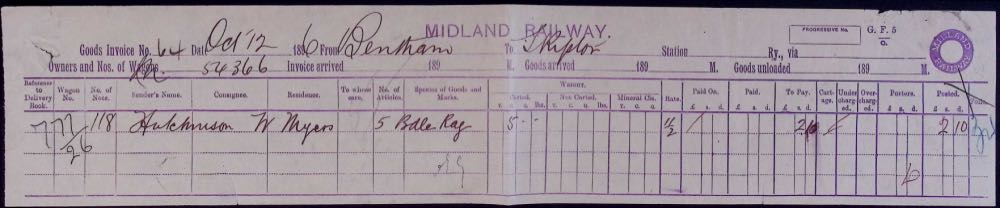 MIDLAND RAILWAY.
PROGRESSIVE No.
G. F. 5
Goods Invoice No. 64 Date Oct 12 1896 From Bentham To Skipton Station Ry., via
Owners and Nos. of Wagons 54366 Invoice arrived 189 M. Goods arrived 189 M. Goods unloaded 189 M.
MIDLAND RAILWAY
Reference to Delivery Book. Wagon No. No. of Note. Sender's Name. Consignee. Residence. To whose care. No. of Articles. Species of Goods and Marks. Weight. Carted. T. C. Q. lbs. Not Carted. T. C. Q. lbs. Mineral Cls. T. C. Q. Rate. Paid On. £ s. d. Paid. £ s. d. To Pay. £ s. d. Cartage. Undercharged. Overcharged. Porters. £ s. d. Posted. £ s. d. Folio.
77/26 118 Hutchinson W Myers 5 Bdle Rag 5 - - 11/2 2 10 2 10
6